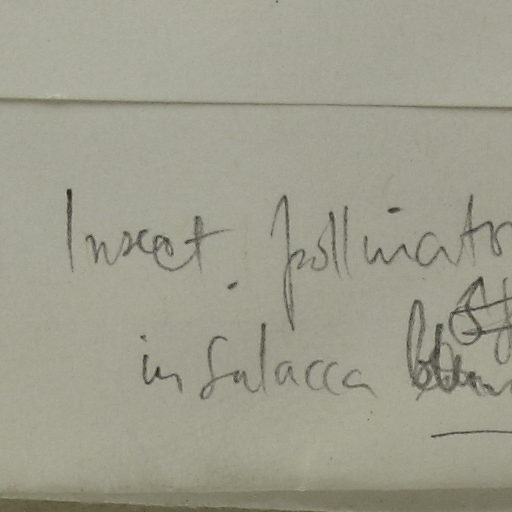 Insect. pollinato
in Salacca